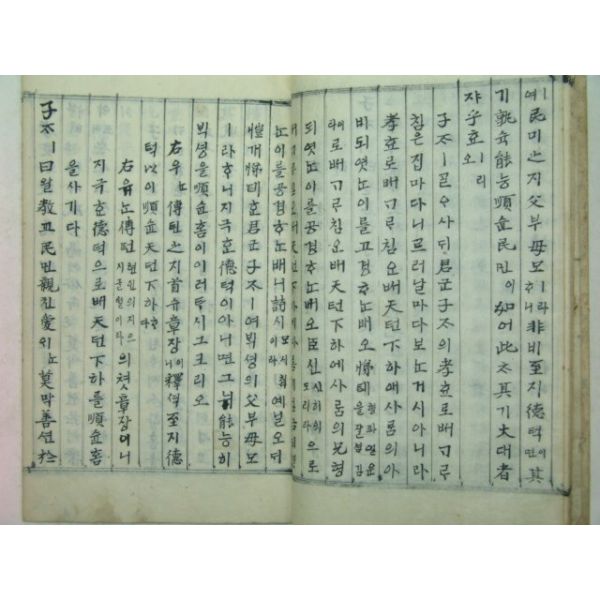 예民민之지父부母모ㅣ라ᄒᆞ니非비至지德덕이면其
기孰슉能능順슌民민이如여此ᄎᆞ其기大대者
쟈乎호ㅣ리오
子ᄌᆞㅣᄀᆞᆯᄋᆞ사ᄃᆡ君군子ᄌᆞ의孝효로ᄡᅥᄀᆞᄅᆞ
침은집마다니르러날마다보ᄂᆞᆫ거시아니라
孝효로ᄡᅥᄀᆞᄅᆞ침오ᄡᅥ天텬下하애사ᄅᆞᆷ의아
비되엿ᄂᆞᆫ이를고경ᄒᆞᄂᆞᆫ배오悌뎨
로ᄡᅥᄀᆞᄅᆞ침오ᄡᅥ天텬下하에사ᄅᆞᆷ의兄형
되엿ᄂᆞᆫ이를공경ᄒᆞᄂᆞᆫ배오臣신신하의도리라의으로
ᄂᆞᆫ이를공경ᄒᆞᄂᆞᆫ배니詩시예ᄀᆞᆯ오ᄃᆡ
愷개悌뎨ᄒᆞᆫ君군子ᄌᆞㅣ여ᄇᆡᆨ셩의父부母모
ㅣ라ᄒᆞ니지극ᄒᆞᆫ德덕이아니면그뉘能능히
ᄇᆡᆨ셩을順슌홈이이러ᄐᆞ시그크리오
右우ᄂᆞᆫ傳뎐之지首슈章쟝이니釋셕至지德
덕以이順슌天텬下하ᄒᆞ다
右우ᄂᆞᆫ傳뎐현인의지으신글월이라의첫章쟝이니
지극ᄒᆞᆫ德덕으로ᄡᅥ天텬下하를順슌홈
을사기다
子ᄌᆞㅣ曰왈敎교民민親친愛ᄋᆡᄂᆞᆫ莫막善션於